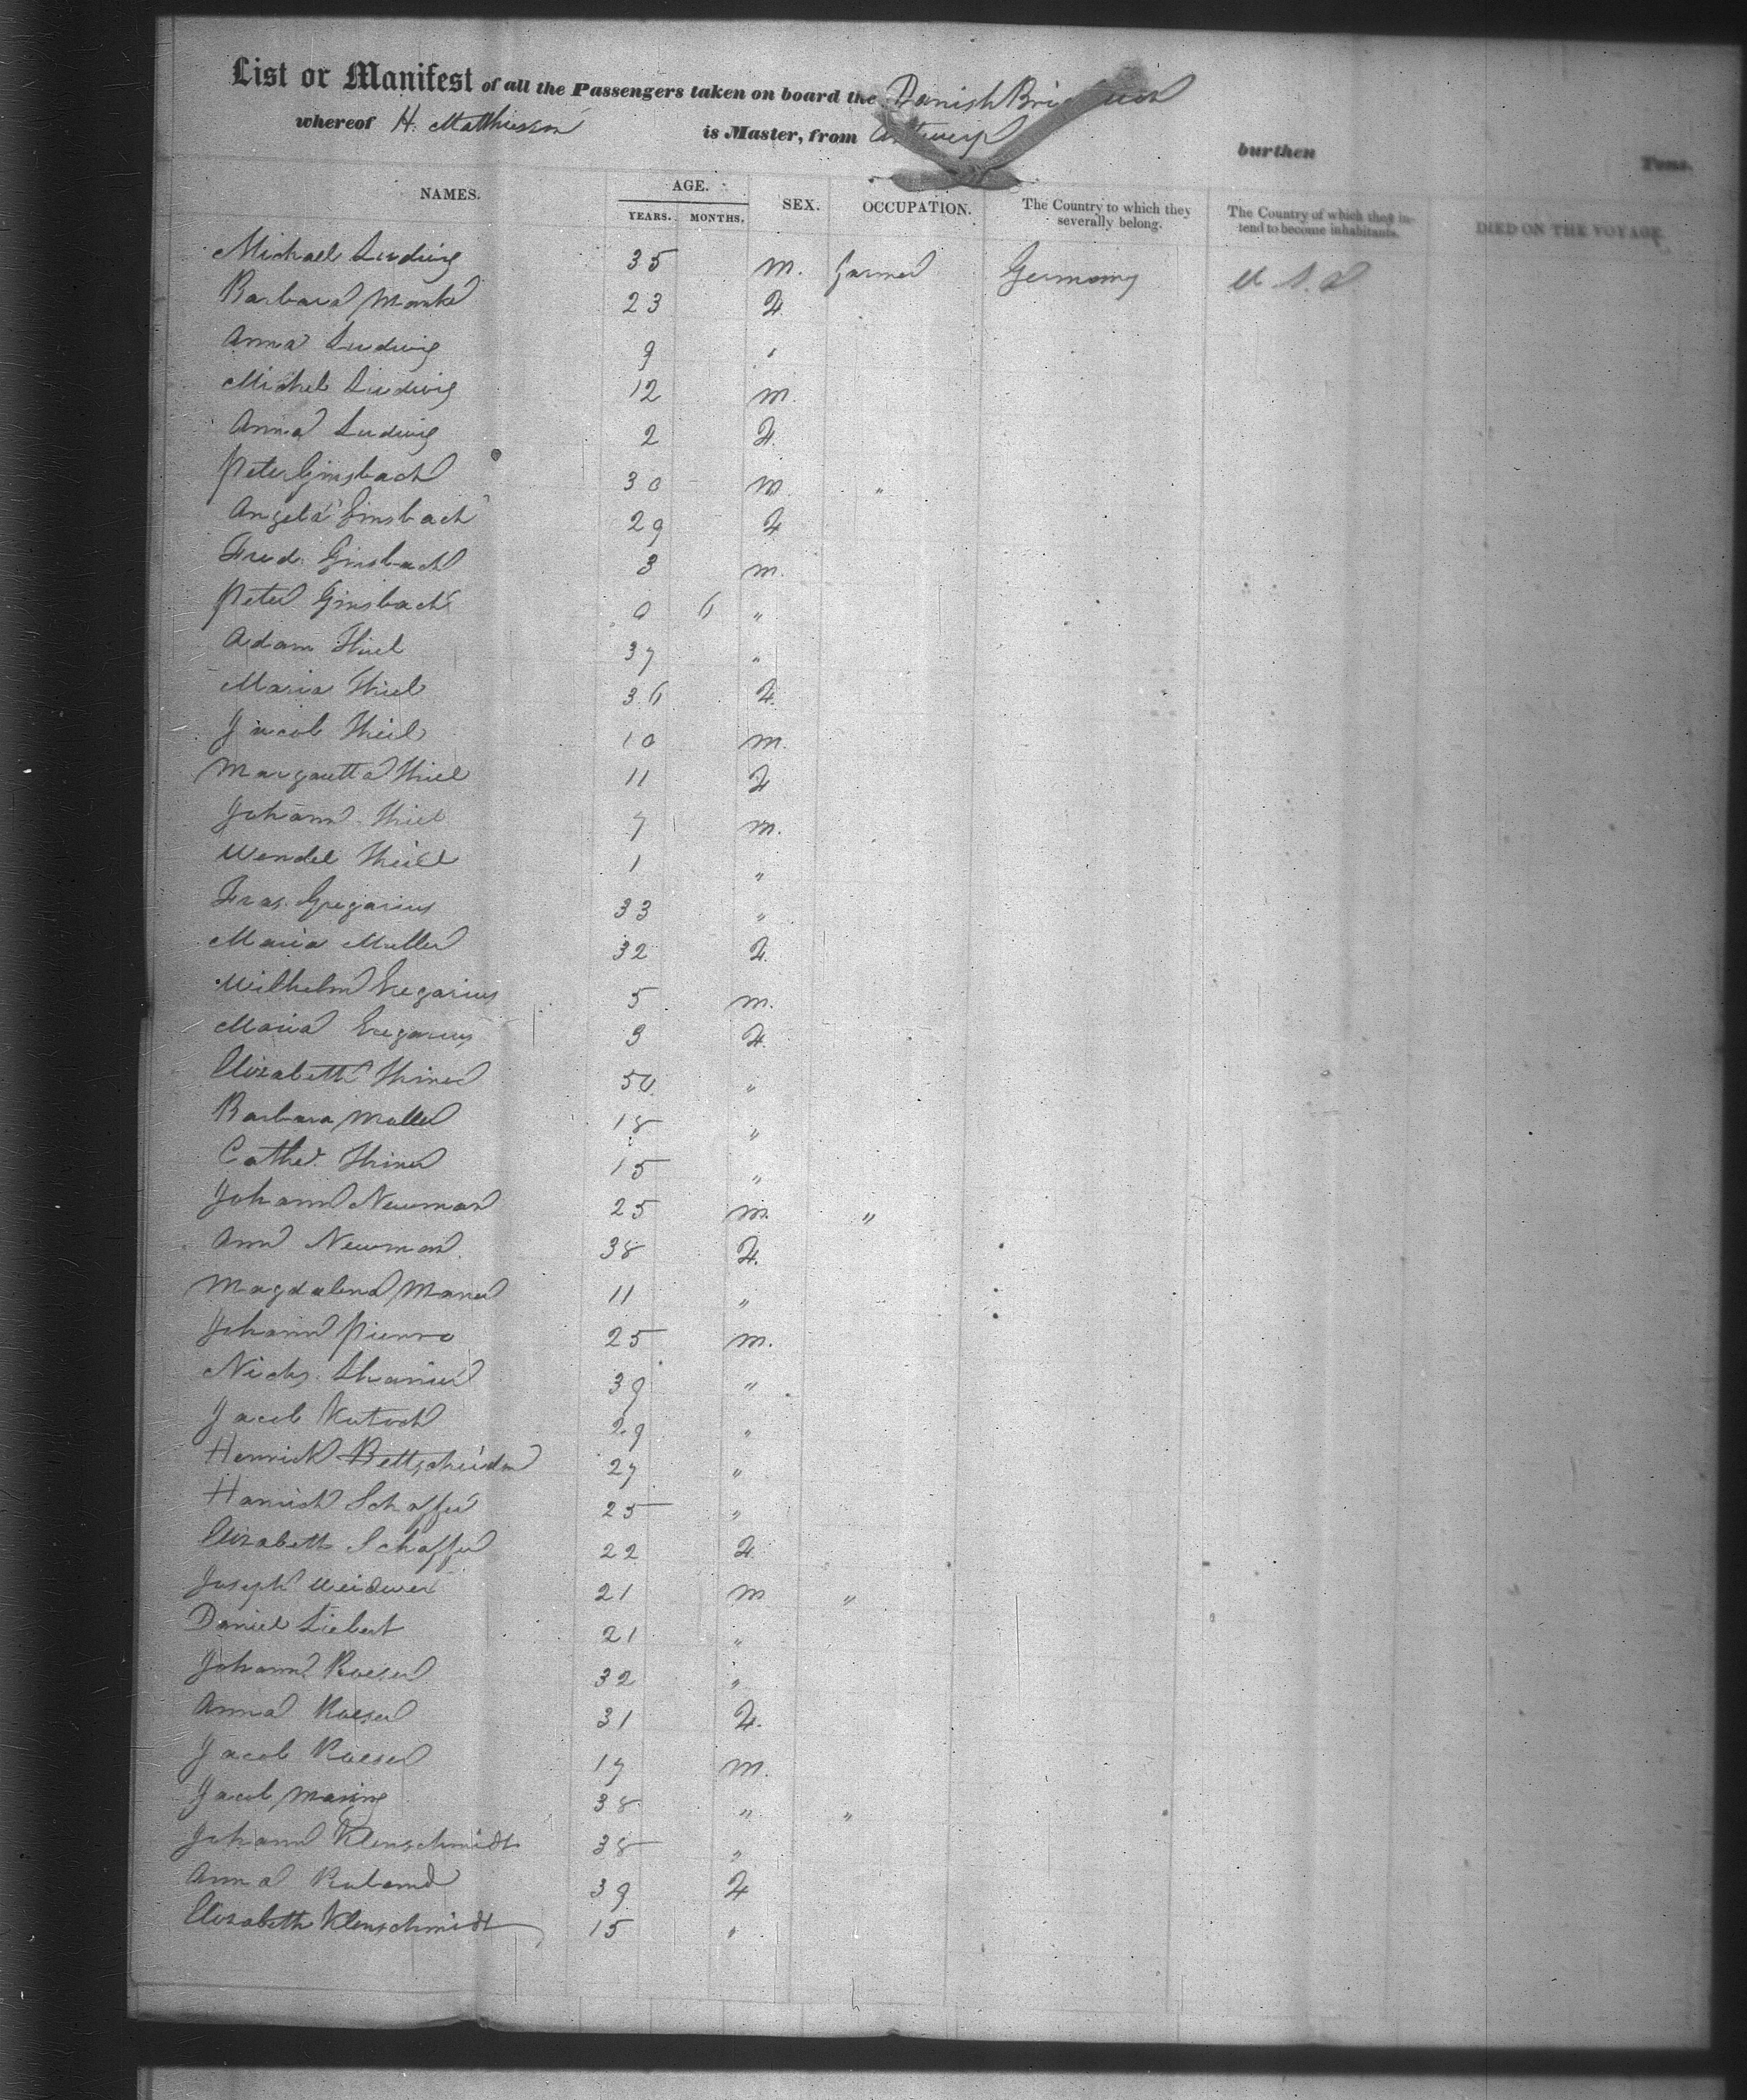 List or Manifest of all the Passengers taken on board the Danish Brig
whereof H. Matthiesson is Master, from Antwerp burthen Tons.
NAMES. AGE. YEARS. MONTHS. SEX. OCCUPATION. The Country to which they severally belong. The Country of which they intend to become inhabitants. DIED ON THE VOYAGE.
Michael Ludwig 35 m. Farmer Germany U.S.A
Barbara 23 F.
Anna Ludwig 9 "
Michel Ludwig 12 m.
Anna Ludwig 2 F.
Peter Ginsbach 30 m. "
Angela Ginsbach 29 F
Fred. Ginsbach 3 m.
Peter Ginsbach 0 6 "
Adam Thiel 37 "
Maria Thiel 36 F.
Jacob Thiel 10 m.
Margaretta Thiel 11 F
Johann Thiel 7 m.
Wendel Thiel 1 "
Fras. Gregarius 33 "
Maria Muller 32 F.
Wilhelm Gregarius 5 m.
Maria Gregarius 3 F.
Elizabeth Thines 50 "
Barbara Muller 18 "
Cathe. Thines 15 "
Johann Newman 25 m. "
Ann Newman 38 F.
Magdalena 11 "
Johann Pierro 25 m.
Nichs. 39 "
Jacob 29 "
Henrick Bettscheider 27 "
Hanrich Schaffer 25 "
Elizabeth Schaffer 22 F.
Joseph 21 m "
Daniel Liebert 21 "
Johann Roeser 32 "
Anna Roeser 31 F.
Jacob Roeser 17 m.
Jacob 38 " "
Johann Klenschmidt 38 "
Anna 39 F
Elizabeth Klenschmidt 15 "